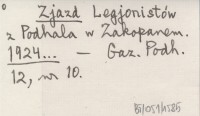 Zjazd Legjonistów
z Podhala w Zakopanem.
1924... — Gaz. Podh.
12, nr 10.